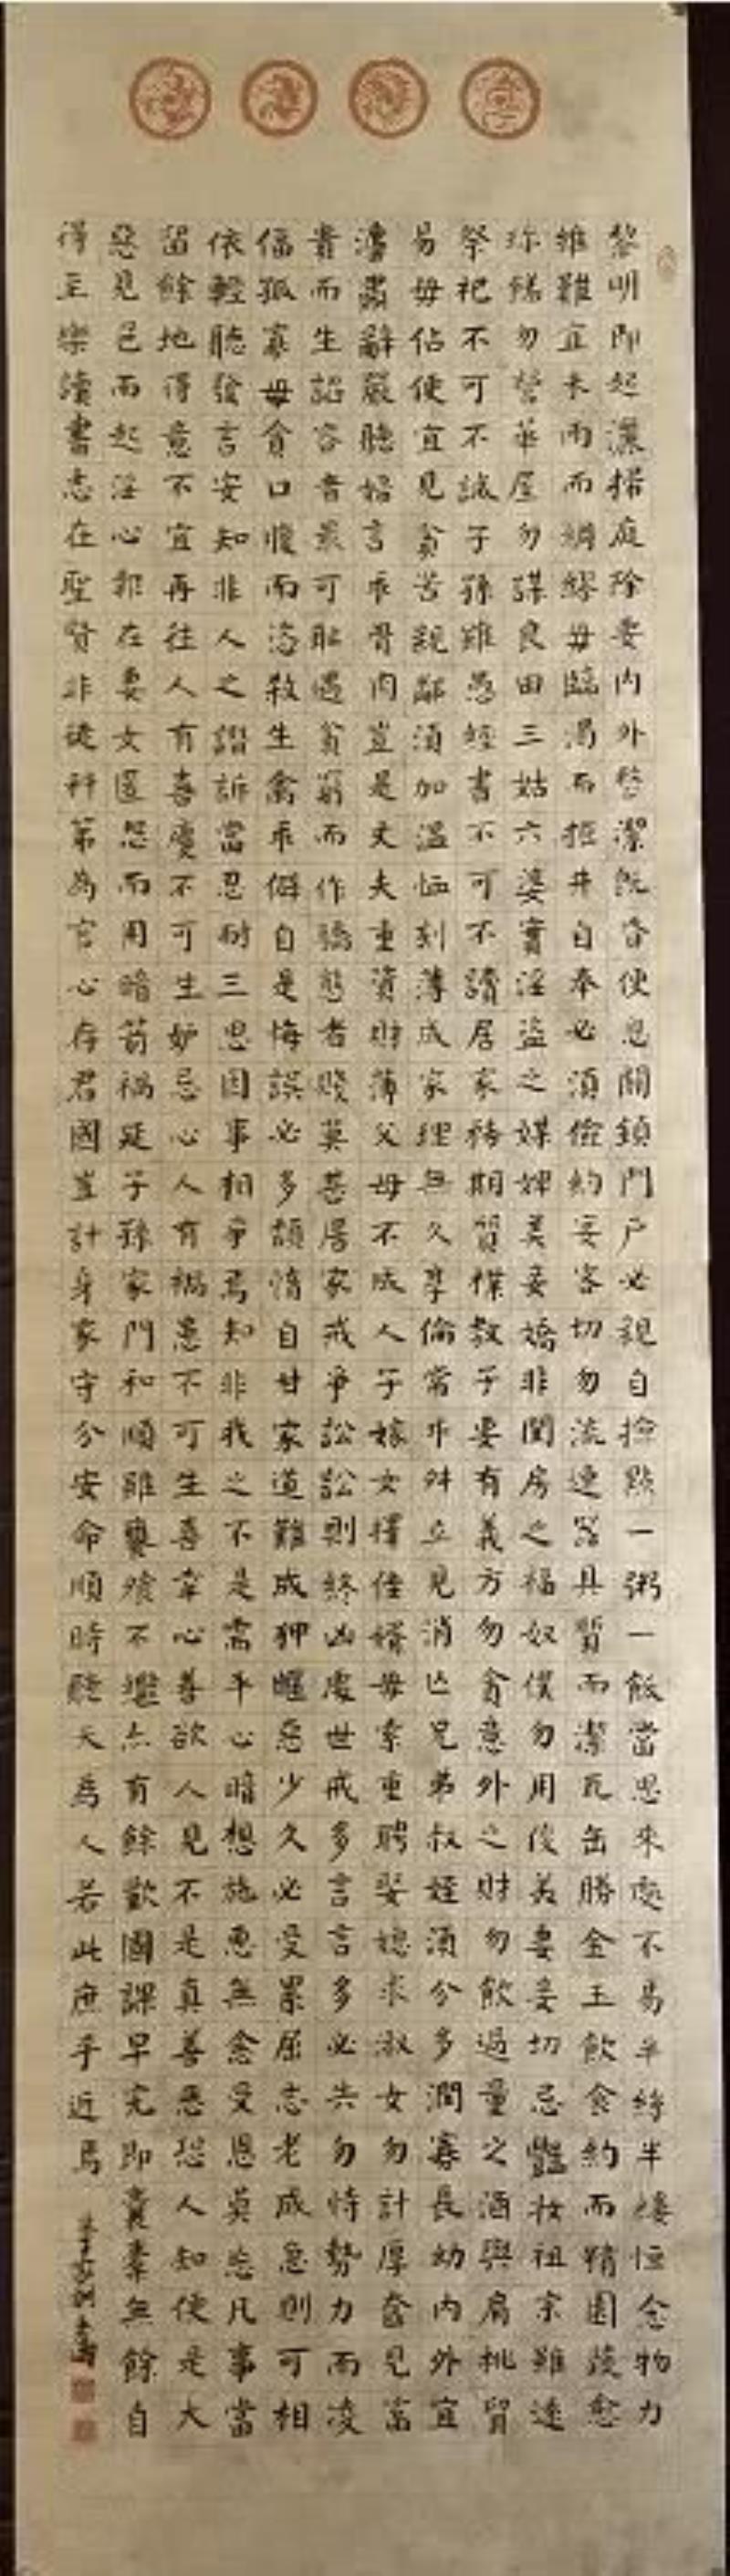 黎明即起灑掃庭除要内外整潔既昏便息關鎖門户必親自撿點一粥一飯當思來處不易半絲半縷恒念物力
維難宜未雨而綢繆毋臨渴而掘井自奉必須儉約宴客切勿流連器具質而潔瓦缶勝金玉飲食約而精園蔬愈
珍饈勿營華屋勿謀良田三姑六婆實淫盜之媒婢美妾嬌非閨房之福奴僕勿用俊美妻妾切忌豔妝祖宗雖遠
祭祀不可不誠子孫雖愚經書不可不讀居家務期質樸教子要有義方勿貪意外之財勿飲過量之酒與肩挑貿
易毋佔便宜見貧苦親鄰須加溫恤刻薄成家理無久享倫常乖舛立見消亡兄弟叔姪須分多潤寡長幼内外宜
濂肅辭嚴聽婦言乖骨肉豈是丈夫重資財薄父母不成人子嫁女擇佳婿毋索重聘娶媳求淑女勿計厚奩見富
貴而生諂容者最可恥遇貧窮而作驕態者賤莫甚居家戒爭訟訟則終凶處世戒多言言多必失勿恃勢力而凌
偪孤寡毋貪口腹而恣殺生禽乖僻自是悔誤必多頹惰自甘家道難成狎暱惡少久必受累屈志老成急則可相
依輕聽發言安知非人之譖訴當忍耐三思因事相爭焉知非我之不是需平心暗想施惠無念受恩莫忘凡事當
留餘地得意不宜再往人有喜慶不可生妒忌心人有禍患不可生喜幸心善欲人見不是真善惡恐人知便是大
惡見色而起淫心報在妻女匿怨而用暗箭禍延子孫家門和順雖饔飧不繼亦有餘歡國課早完即囊橐無餘自
得至樂讀書志在聖賢非徒科第為官心存君國豈計身家守分安命順時聽天為人若此庶乎近焉